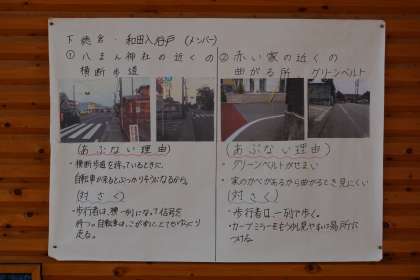 下徳倉・和田入谷戸 (メンバー)
①八まん神社の近くの
横断歩道
(あぶない理由)
・横断歩道を待っているときに、
自転車が来るとぶつかりそうになるから。
(対さく)
・歩行者は、横一列になって信号を
待つ。自転車は、こがめことゆっくり
走る。
②赤い家の近くの
曲がる所 グリーンベルト
(あぶない理由)
・グリーンベルトがせまい
・家のかべがあるから曲がるとき見にくい
(対さく)
・歩行者は、一列で歩く。
・カーブミラーをもう少し見やすい場所に
つける。